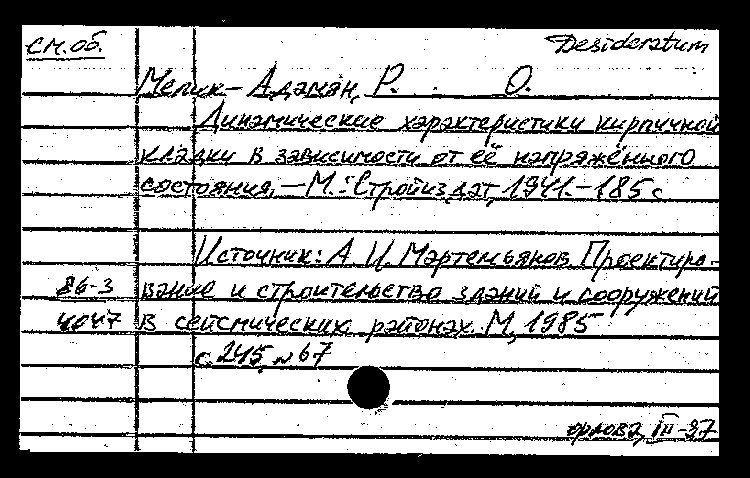 см. об. Desideratum
Мелик-Адамян, Р. О.
Динамические характеристики кирпичной
кладки в зависимости от её напряжённого
состояния. — М.: Стройиздат, 1941. — 185 с
Источник: А. И. Мартемьянов. Проектиро-
86-3 вание и строительство зданий и сооружений
4047 в сейсмических районах. М, 1985
с. 245, № 67
орлова, III-87